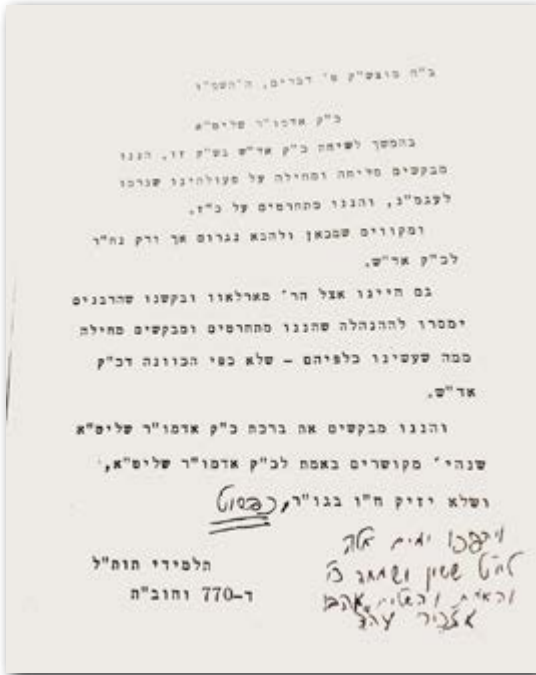 ב"ה מוצש"ק פ' דברים, ה'תשמ"ו
כ"ק אדמו"ר שליט"א
בהמשך לשיחת כ"ק אד"ש בש"ק זו, הננו
מבקשים סליחה ומחילה על פעולותינו שגרמו
לעגמ"נ, והננו מתחרטים על כ"ז.
ומקווים שמכאן ולהבא נגרום אך ורק נח"ר
לכ"ק אד"ש.
גם היינו אצל הר' מארלאוו ובקשנו שהרבנים
ימסרו לההנהלה שהננו מתחרטים ומבקשים מחילה
ממה שעשינו כלפיהם – שלא כפי הכוונה דכ"ק
אד"ש.
והננו מבקשים את ברכת כ"ק אדמו"ר שליט"א
שנהי' מקושרים באמת לכ"ק אדמו"ר שליט"א,
ושלא יזיק ח"ו בגו"ר, כפשוט
ויהפכו ימים אלה
לששון ושמחה
והאמת והשלום אהבו
אזכיר עה"צ
תלמידי תות"ל
ד-770 וחוב"ת